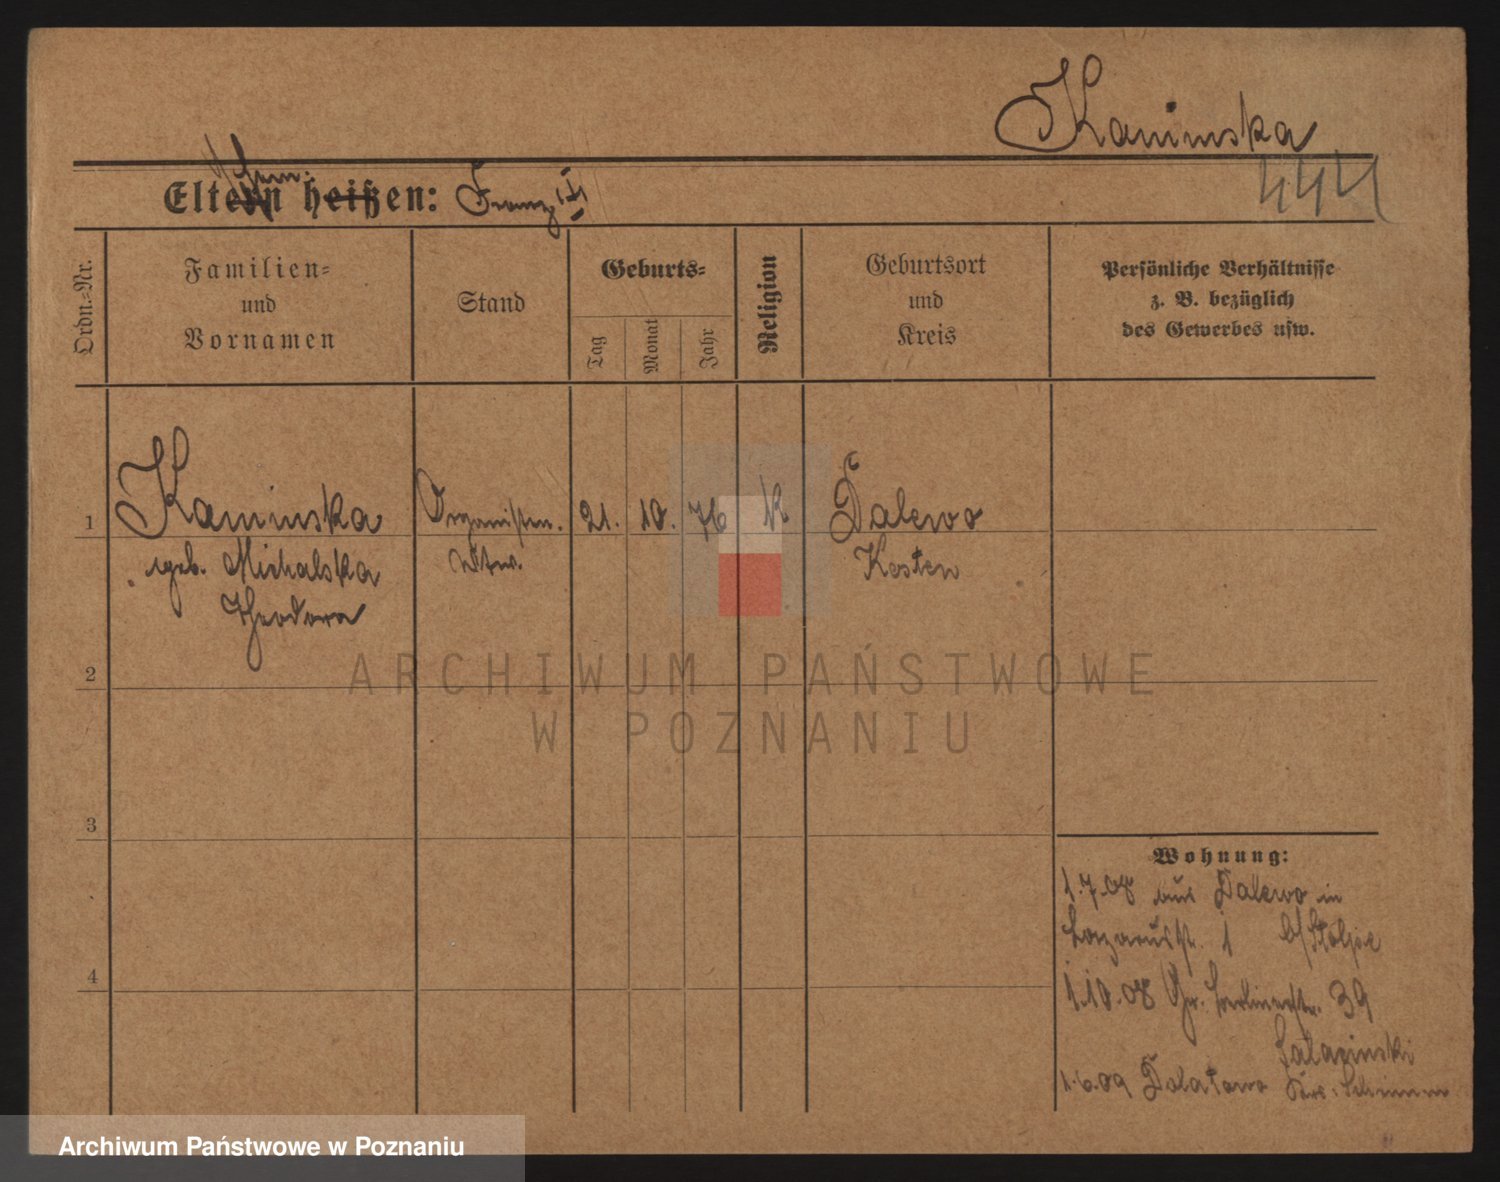 Kaminska
Ehem.
Eltern heißen: Franz
444
Ordn.-Nr.
Familien-
und
Vornamen
Stand
Geburts-
Tag
Monat
Jahr
Religion
Geburtsort
und
Kreis
Persönliche Verhältnisse
z. B. bezüglich
des Gewerbes usw.
1
Kaminska
geb. Michalska
Theodora
Organisten.
Wtwe.
21.
10.
76
K
Dalewo
Kosten
2
3
4
Wohnung:
1.7.08 aus Dalewo in
Lazarusstr. 1 b/
1.10.08 Gr. Berlinerstr. 39
1.6.09 Dolatowo Krs. Schrimm
ARCHIWUM PAŃSTWOWE
W POZNANIU
Archiwum Państwowe w Poznaniu